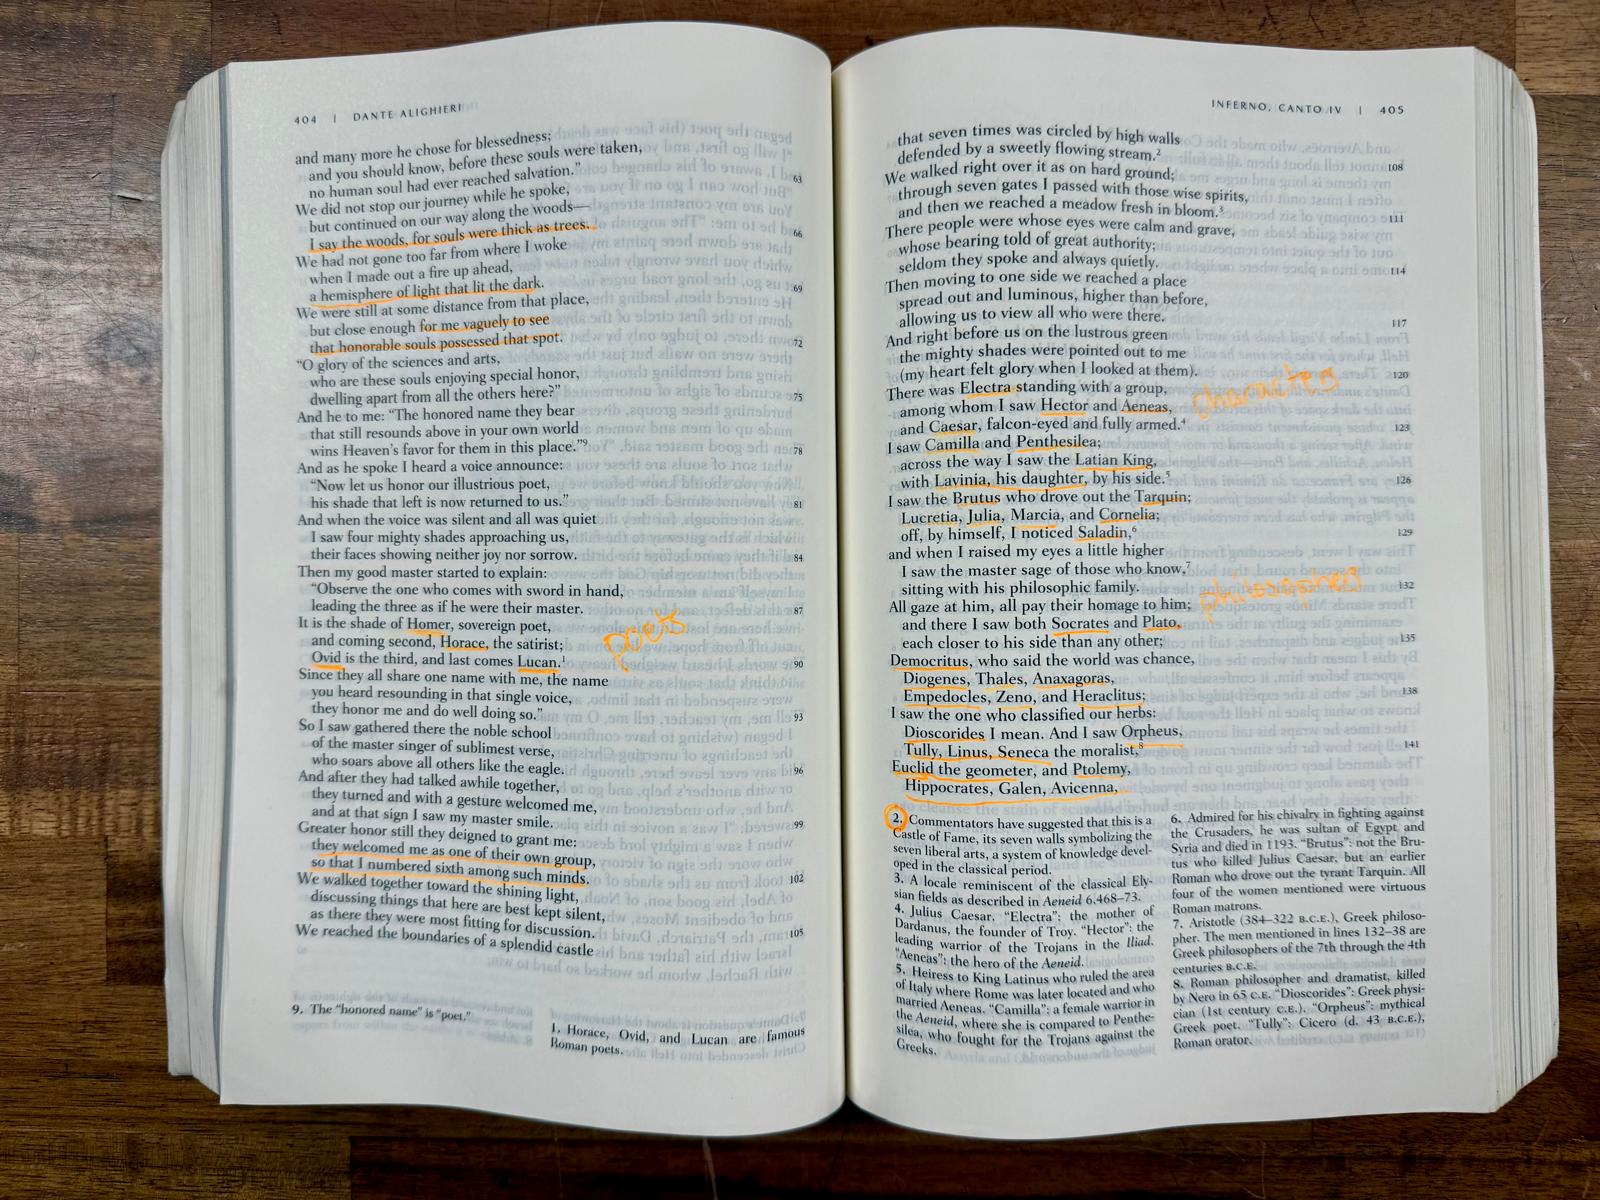 404 | DANTE ALIGHIERI
and many more he chose for blessedness;
and you should know, before these souls were taken,
no human soul had ever reached salvation." 63
We did not stop our journey while he spoke,
but continued on our way along the woods—
I say the woods, for souls were thick as trees. 66
We had not gone too far from where I woke
when I made out a fire up ahead,
a hemisphere of light that lit the dark. 69
We were still at some distance from that place,
but close enough for me vaguely to see
that honorable souls possessed that spot. 72
"O glory of the sciences and arts,
who are these souls enjoying special honor,
dwelling apart from all the others here?" 75
And he to me: "The honored name they bear
that still resounds above in your own world
wins Heaven's favor for them in this place."9 78
And as he spoke I heard a voice announce:
"Now let us honor our illustrious poet,
his shade that left is now returned to us." 81
And when the voice was silent and all was quiet
I saw four mighty shades approaching us,
their faces showing neither joy nor sorrow. 84
Then my good master started to explain:
"Observe the one who comes with sword in hand,
leading the three as if he were their master. 87
It is the shade of Homer, sovereign poet,
and coming second, Horace, the satirist;
poets
Ovid is the third, and last comes Lucan.1 90
Since they all share one name with me, the name
you heard resounding in that single voice,
they honor me and do well doing so." 93
So I saw gathered there the noble school
of the master singer of sublimest verse,
who soars above all others like the eagle. 96
And after they had talked awhile together,
they turned and with a gesture welcomed me,
and at that sign I saw my master smile. 99
Greater honor still they deigned to grant me:
they welcomed me as one of their own group,
so that I numbered sixth among such minds. 102
We walked together toward the shining light,
discussing things that here are best kept silent,
as there they were most fitting for discussion. 105
We reached the boundaries of a splendid castle
9. The "honored name" is "poet."
1. Horace, Ovid, and Lucan are famous
Roman poets.
INFERNO, CANTO IV | 405
that seven times was circled by high walls
defended by a sweetly flowing stream.2 108
We walked right over it as on hard ground;
through seven gates I passed with those wise spirits,
and then we reached a meadow fresh in bloom.3 111
There people were whose eyes were calm and grave,
whose bearing told of great authority;
seldom they spoke and always quietly. 114
Then moving to one side we reached a place
spread out and luminous, higher than before,
allowing us to view all who were there. 117
And right before us on the lustrous green
the mighty shades were pointed out to me
(my heart felt glory when I looked at them). 120
There was Electra standing with a group,
characters
among whom I saw Hector and Aeneas,
and Caesar, falcon-eyed and fully armed.4 123
I saw Camilla and Penthesilea;
across the way I saw the Latian King,
with Lavinia, his daughter, by his side.5 126
I saw the Brutus who drove out the Tarquin;
Lucretia, Julia, Marcia, and Cornelia;
off, by himself, I noticed Saladin,6 129
and when I raised my eyes a little higher
I saw the master sage of those who know,7
sitting with his philosophic family. 132
philosophers
All gaze at him, all pay their homage to him;
and there I saw both Socrates and Plato,
each closer to his side than any other; 135
Democritus, who said the world was chance,
Diogenes, Thales, Anaxagoras,
Empedocles, Zeno, and Heraclitus; 138
I saw the one who classified our herbs:
Dioscorides I mean. And I saw Orpheus,
Tully, Linus, Seneca the moralist,8 141
Euclid the geometer, and Ptolemy,
Hippocrates, Galen, Avicenna,
2. Commentators have suggested that this is a
Castle of Fame, its seven walls symbolizing the
seven liberal arts, a system of knowledge devel-
oped in the classical period.
3. A locale reminiscent of the classical Ely-
sian fields as described in Aeneid 6.468–73.
4. Julius Caesar, "Electra": the mother of
Dardanus, the founder of Troy. "Hector": the
leading warrior of the Trojans in the Iliad.
"Aeneas": the hero of the Aeneid.
5. Heiress to King Latinus who ruled the area
of Italy where Rome was later located and who
married Aeneas. "Camilla": a female warrior in
the Aeneid, where she is compared to Penthe-
silea, who fought for the Trojans against the
Greeks.
6. Admired for his chivalry in fighting against
the Crusaders, he was sultan of Egypt and
Syria and died in 1193. "Brutus": not the Bru-
tus who killed Julius Caesar, but an earlier
Roman who drove out the tyrant Tarquin. All
four of the women mentioned were virtuous
Roman matrons.
7. Aristotle (384–322 B.C.E.), Greek philoso-
pher. The men mentioned in lines 132–38 are
Greek philosophers of the 7th through the 4th
centuries B.C.E.
8. Roman philosopher and dramatist, killed
by Nero in 65 C.E. "Dioscorides": Greek physi-
cian (1st century C.E.). "Orpheus": mythical
Greek poet. "Tully": Cicero (d. 43 B.C.E.),
Roman orator.